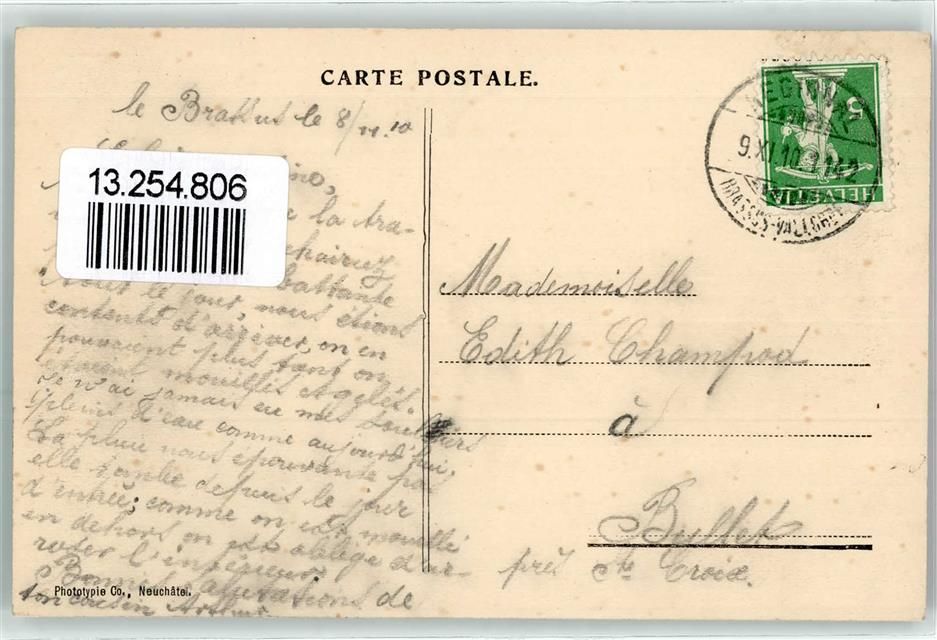 CARTE POSTALE.
le Brassus le 8/11.10
13.254.806
la tra-
battante
tout le jour, nous étions
contents d'arriver, on en
pouvaient plus tant on
étaient mouillés et gelés.
Je n'ai jamais eu mes souliers
pleins d'eau comme aujourd'hui.
La pluie nous epouvante pas
elle tombe depuis le jour
d'entrée; comme on est mouillé
en dehors on est obligé d'ar-
roser l'intérieur
Bonnes salutations de
ton cousin Arthur
Phototypie Co., Neuchâtel.
5
HELVETIA
9.XI.10
BRASSUS-VALLORBE
Mademoiselle
Edith Champod
à
Bullet
près Ste Croix.